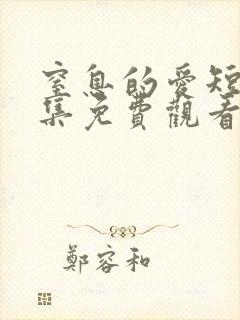 窒息的愛短
集免費觀看
鄭容和